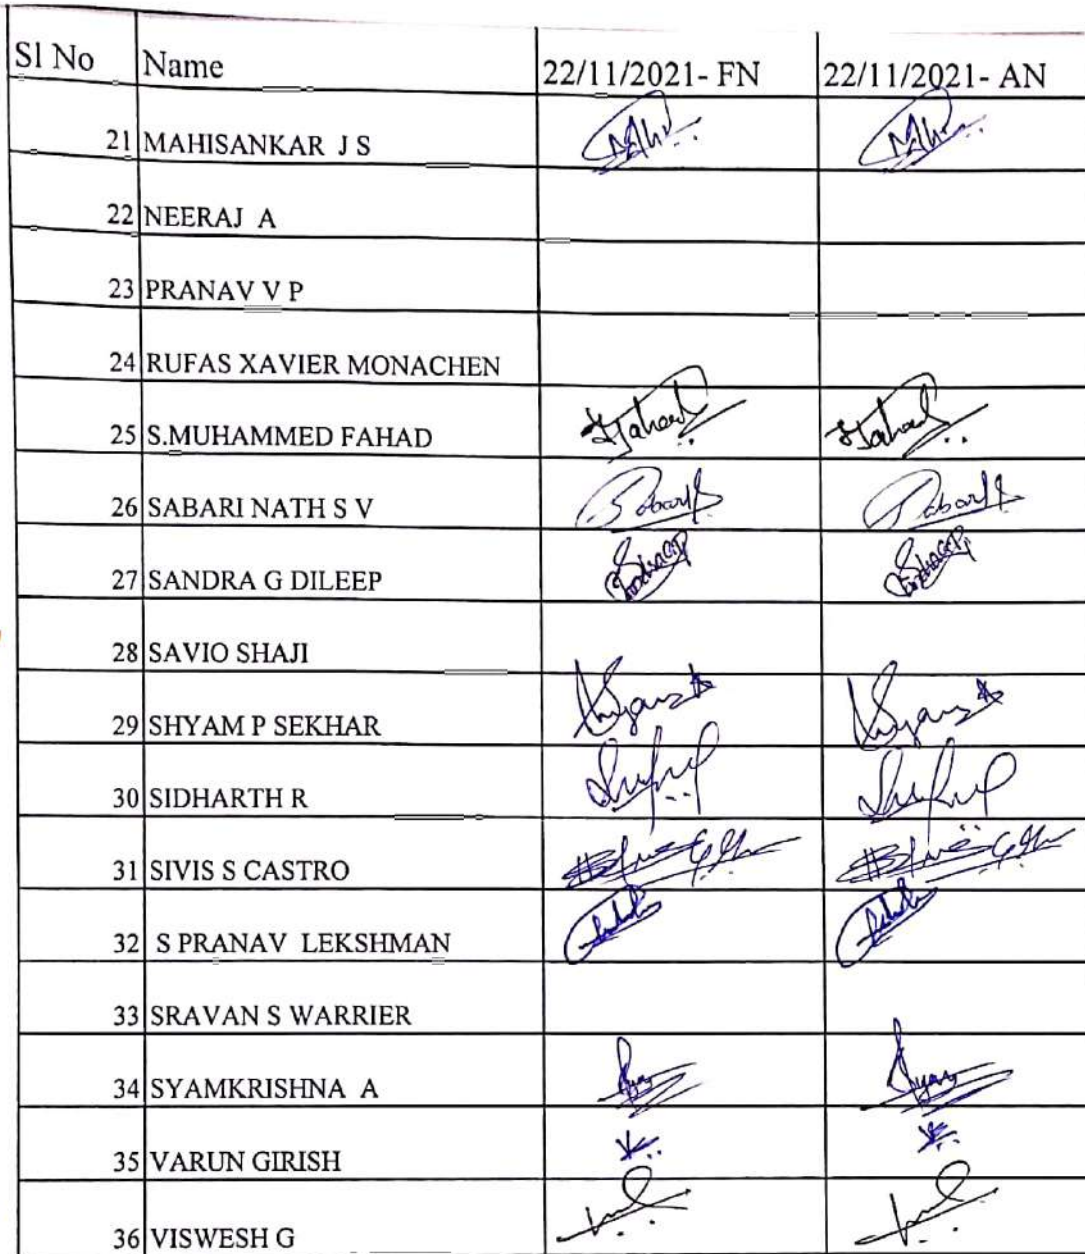 Sl No Name 22/11/2021- FN 22/11/2021- AN
21 MAHISANKAR J S
22 NEERAJ A
23 PRANAV V P
24 RUFAS XAVIER MONACHEN
25 S.MUHAMMED FAHAD Fahad Fahad
26 SABARI NATH S V
27 SANDRA G DILEEP
28 SAVIO SHAJI
29 SHYAM P SEKHAR
30 SIDHARTH R
31 SIVIS S CASTRO
32 S PRANAV LEKSHMAN
33 SRAVAN S WARRIER
34 SYAMKRISHNA A
35 VARUN GIRISH
36 VISWESH G